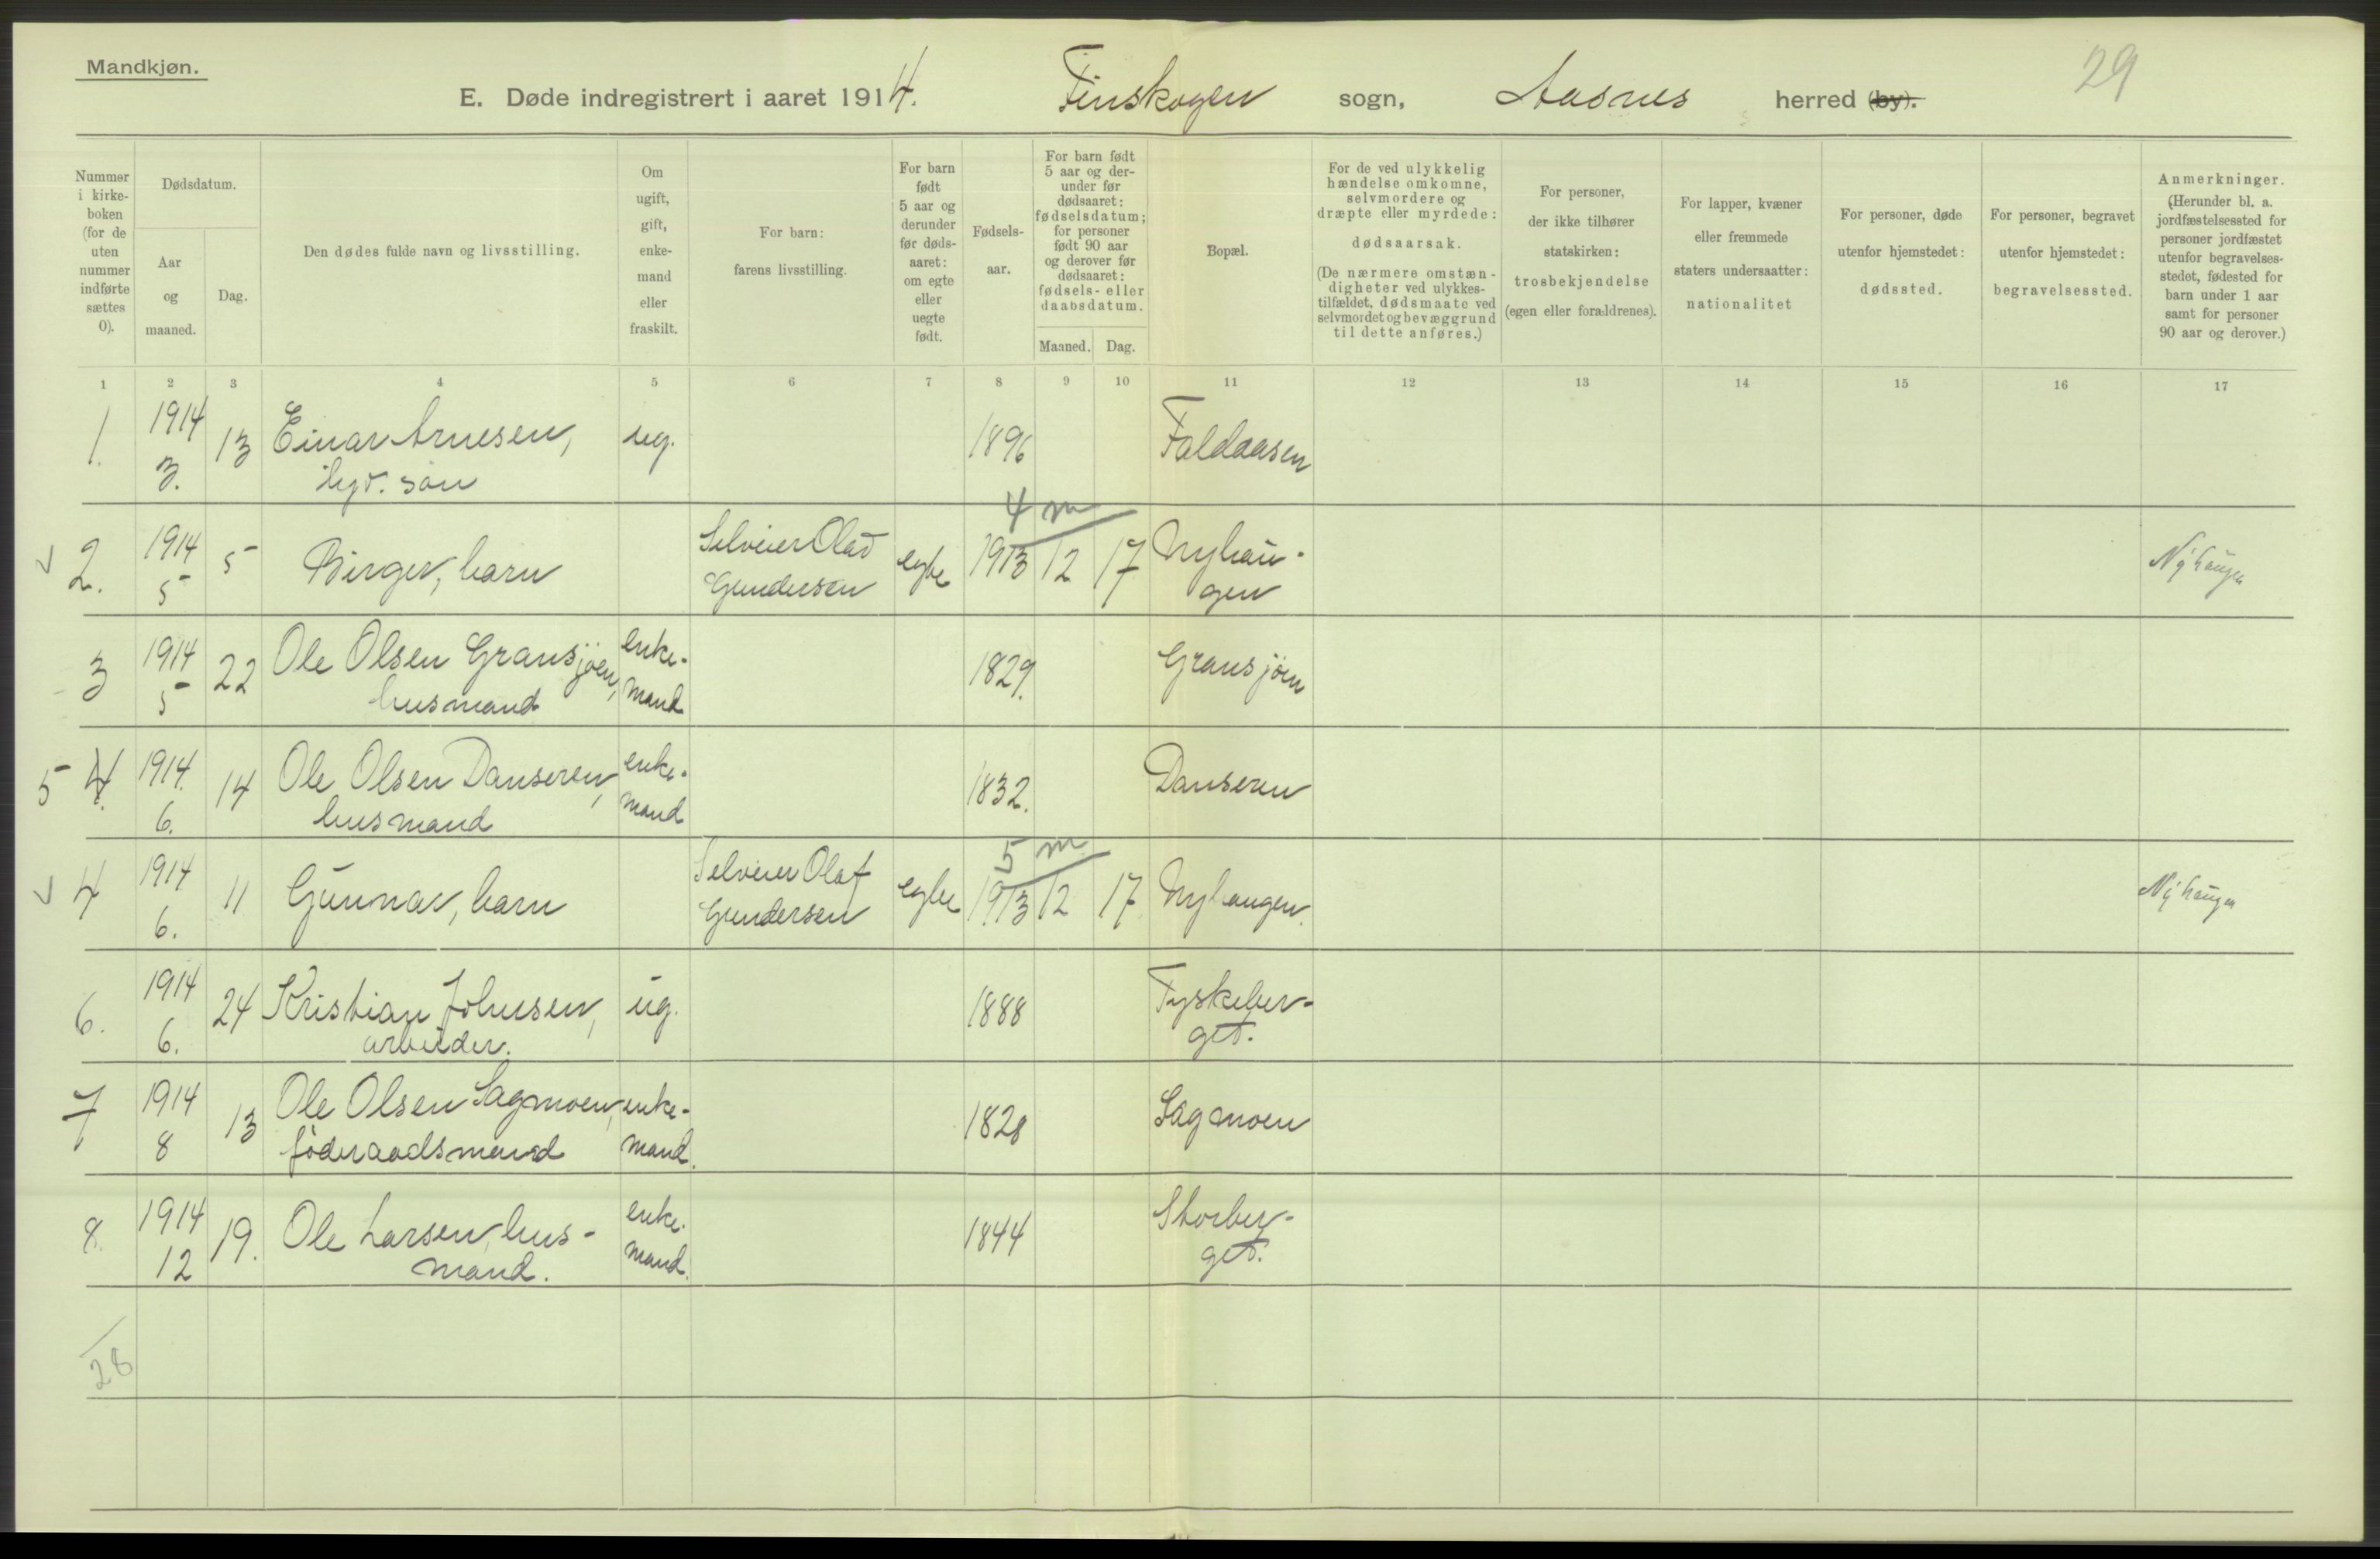 Mandkjøn.
29
E. Døde indregistrert i aaret 1914. Finskogen sogn, Aasnes herred (by).
Nummer i kirke-boken (for de uten nummer indførte sættes 0).
Dødsdatum.
Aar og maaned.
Dag.
Den dødes fulde navn og livsstilling.
Om ugift, gift, enke-mand eller fraskilt.
For barn: farens livsstilling.
For barn født 5 aar og derunder før døds-aaret: om egte eller uegte født.
Fødsels-aar.
For barn født 5 aar og der-under før dødsaaret: fødselsdatum; for personer født 90 aar og derover før dødsaaret: fødsels- eller daabsdatum.
Maaned.
Dag.
Bopæl.
For de ved ulykkelig hændelse omkomne, selvmordere og dræpte eller myrdede: dødsaarsak. (De nærmere omstæn-digheter ved ulykkes-tilfældet, dødsmaate ved selvmordet og bevæggrund til dette anføres.)
For personer, der ikke tilhører statskirken: trosbekjendelse (egen eller forældrenes).
For lapper, kvæner eller fremmede staters undersaatter: nationalitet
For personer, døde utenfor hjemstedet: dødssted.
For personer, begravet utenfor hjemstedet: begravelsessted.
Anmerkninger. (Herunder bl. a. jordfæstelsessted for personer jordfæstet utenfor begravelses-stedet, fødested for barn under 1 aar samt for personer 90 aar og derover.)
1 2 3 4 5 6 7 8 9 10 11 12 13 14 15 16 17
1. 1914 3. 13 Einar Arnesen, ug. 1896 Faldaasen
søn
4 m
2. 1914 5 5 Birger, barn Selveier Olav Gundersen egte 1913 12 17 Nyhau-gen Nyhaugen
3 1914 5 22 Ole Olsen Gransjøen, husmand enke-mand 1829. Gransjøen
5 4. 1914. 6. 14 Ole Olsen Danseren, husmand enke-mand 1832. Danseren
5 m
4 1914 6. 11 Gunnar, barn Selveier Olaf Gundersen egte 1913 12 17 Nyhaugen. Nyhaugen
6. 1914 6. 24 Kristian Johnsen, arbeider. ug. 1888 Tyskeber-get.
7 1914 8 13 Ole Olsen Sagmoen, föderaadsmand enke-mand. 1828 Sagmoen
8. 1914 12 19. Ole Larsen, hus-mand. enke-mand. 1844 Storber-get.
28